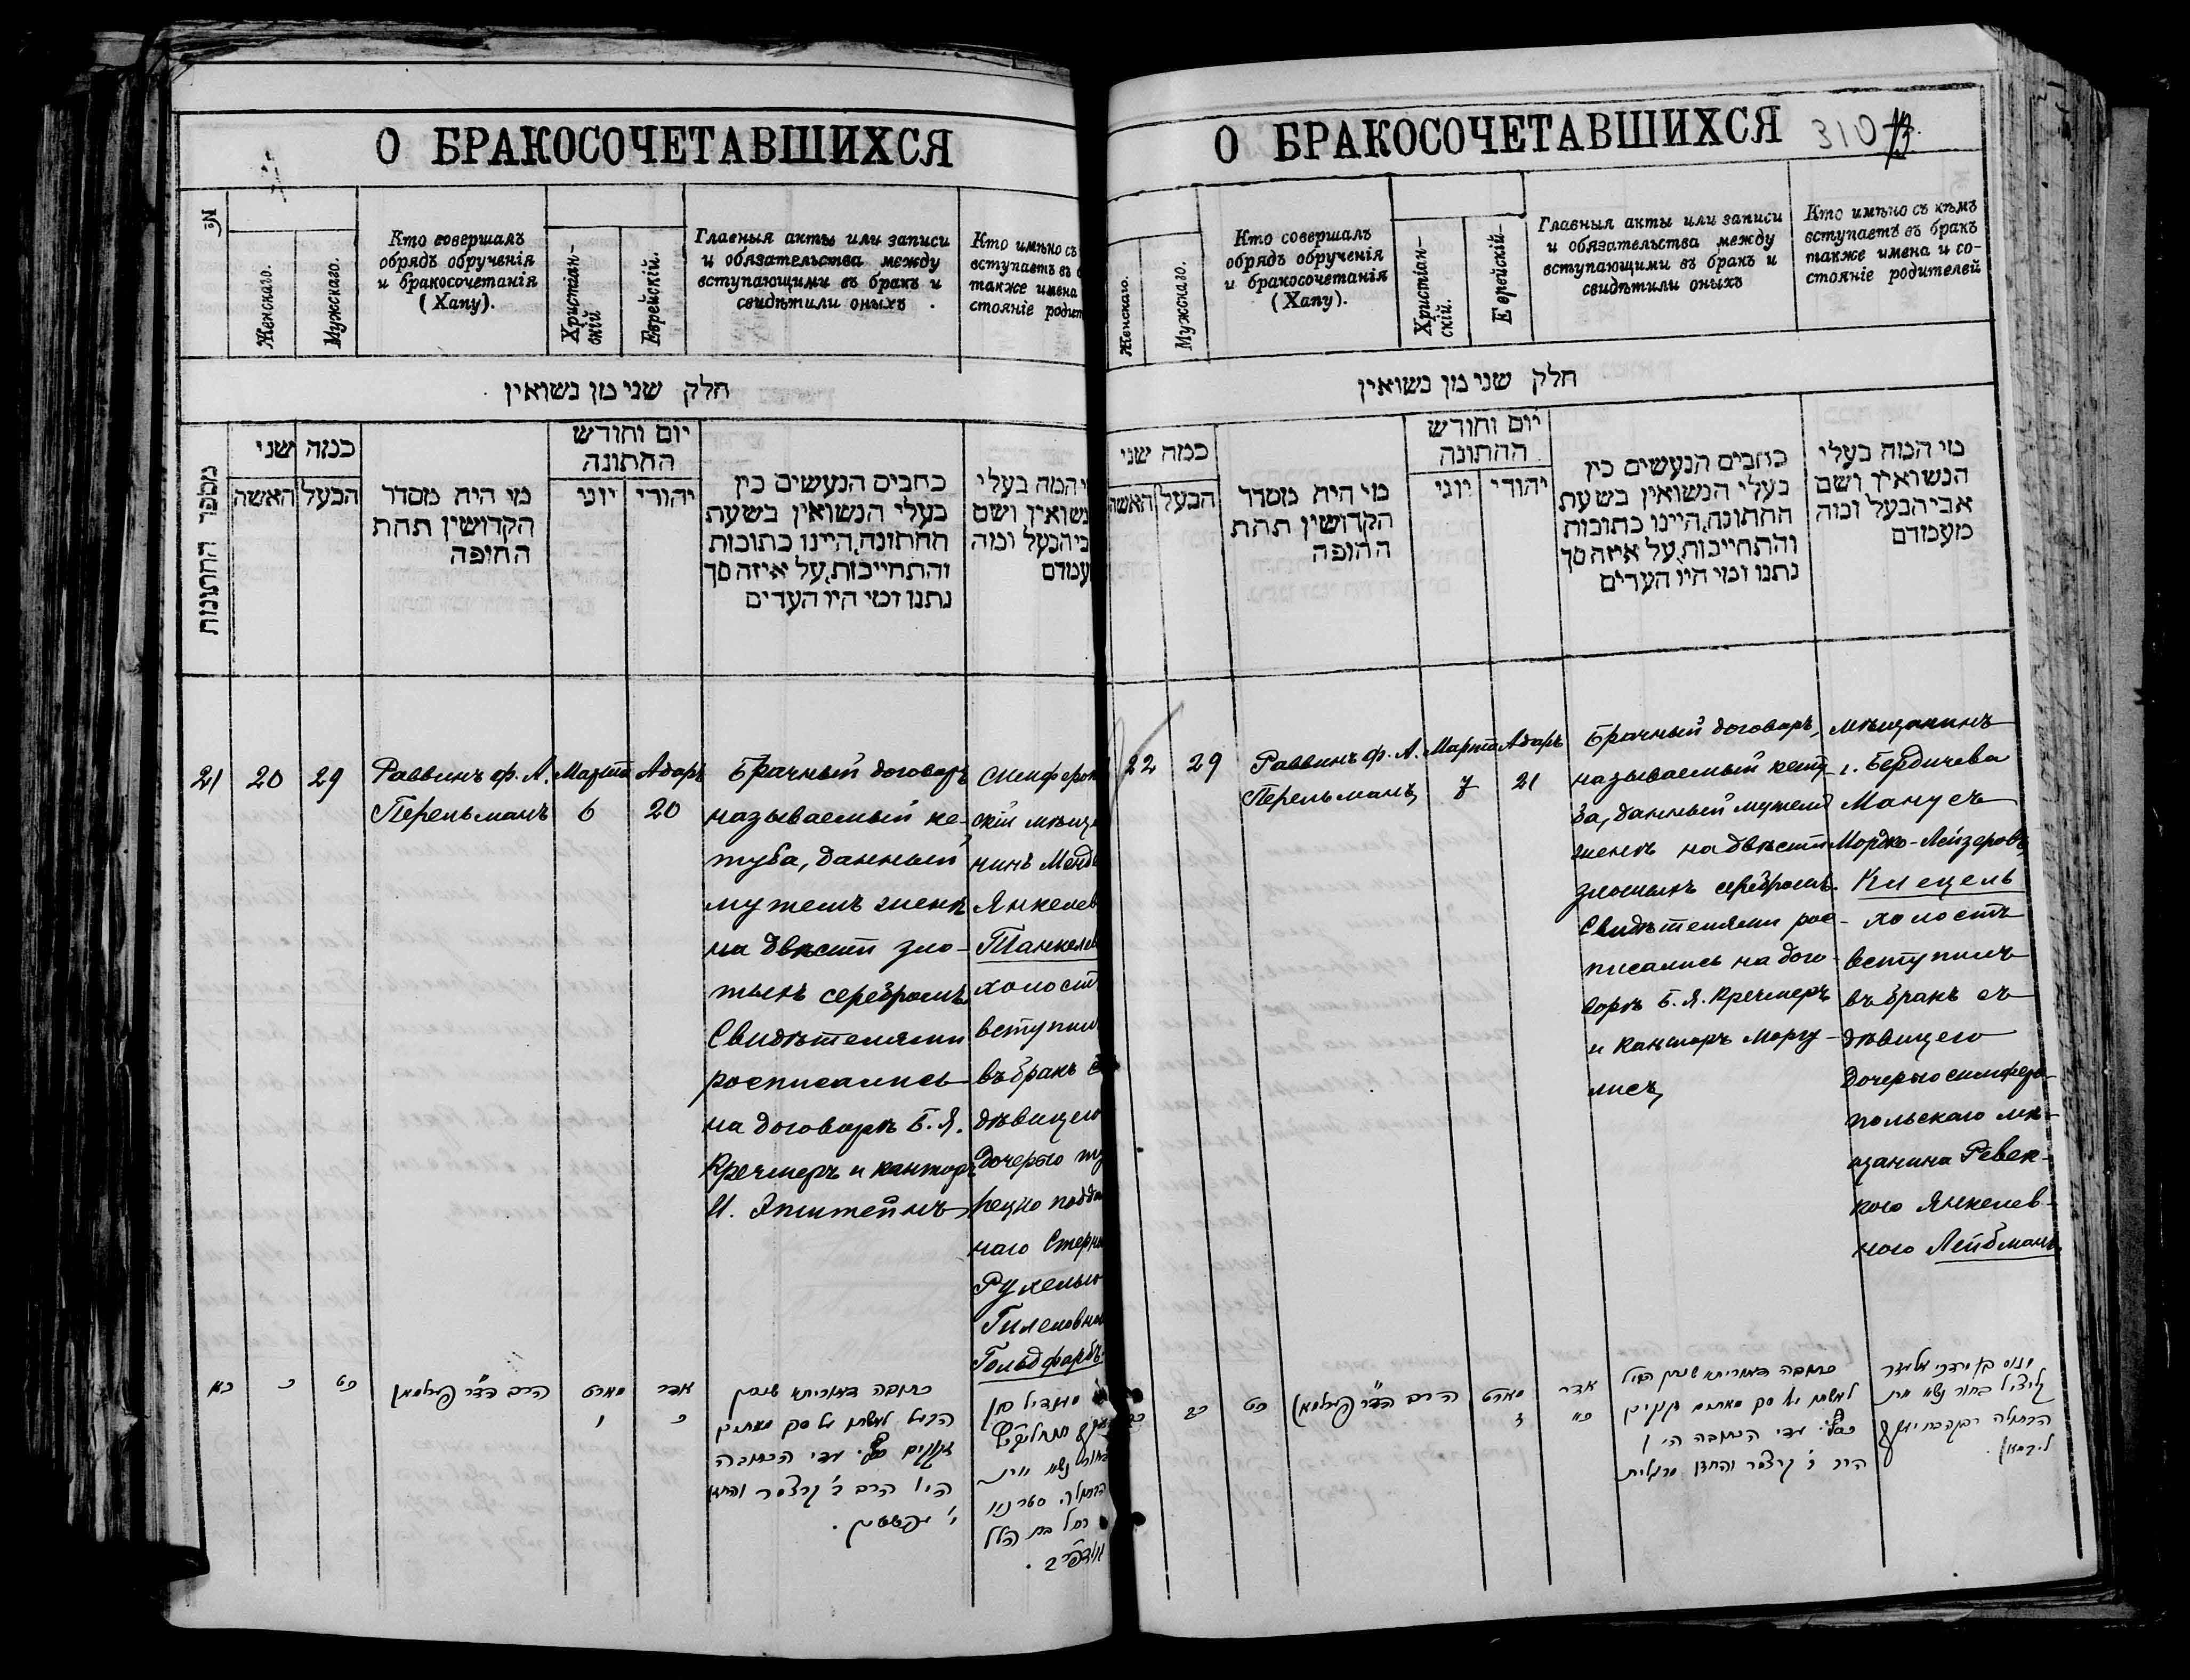 О БРАКОСОЧЕТАВШИХСЯ
№
Женскаго.
Мужскаго.
Кто совершалъ
обрядъ обрученія
и бракосочетанія
(Хапу).
Христіан-
скій
Еврейскій.
Главныя акты или записи
и обязательства между
вступающими въ бракъ и
свидѣтили оныхъ
Кто имѣно съ
вступаетъ въ
также имена
стояніе родит
חלק שני מן נשואין
מספר החתונות
כמה שני
האשה הבעל
מי היה מסדר
הקדושין תחת
החופה
יום וחודש
החתונה
יהודי יוני
כתבים הנעשים בין
בעלי הנשואין בשעת
החתונה, היינו כתובות
והתחייבות, על איזה סך
נתנו ומי היו העדים
י המה בעלי
נשואין ושם
בי הבעל ומה
עמדם
21 20 29
Раввинъ ф. А.
Перельманъ
Марта
6
Адаръ
20
Брачный договоръ
называемый ке-
туба, данный
мужемъ женѣ
на двѣсти зло-
тыхъ серебромъ.
Свидѣтелями
росписались
на договорѣ Б. Я.
Кречмеръ и канторъ
И. Эпштейнъ
Симферопо
скій мѣща
нинъ Менде
Янкелев
Танкелев
холостъ
вступил
въ бракъ с
дѣвицею
дочерью ту
рецко поддан
наго Стерна
Рухелью
Гилеловно
Гольдфарбъ
כא כ כט
הרב הד״ר פערלמאן
מארט
ו
אדר
כ
כתובה דאורייתא שנתן
הבעל לאשתו על סך מאתים
זקוקים כסף. עדי הכתובה
היו הרב ר׳ קרצמר והחזן
י׳ עפשטיין.
О БРАКОСОЧЕТАВШИХСЯ 310
Женскаго.
Мужскаго.
Кто совершалъ
обрядъ обрученія
и бракосочетанія
(Хапу).
Христіан-
скій.
Еврейскій-
Главныя акты или записи
и обязательства между
вступающими въ бракъ и
свидѣтили оныхъ
Кто имѣно съ кѣмъ
вступаетъ въ бракъ
также имена и со-
стояніе родителей
חלק שני מן נשואין
כמה שני
האשה הבעל
מי היה מסדר
הקדושין תחת
החופה
יום וחודש
החתונה
יהודי יוני
כתבים הנעשים בין
בעלי הנשואין בשעת
החתונה, היינו כתובות
והתחייבות, על איזה סך
נתנו ומי היו העדים
מי המה בעלי
הנשואין ושם
אבי הבעל ומה
מעמדם
22 29
Раввинъ ф. А.
Перельманъ
Марта
7
Адаръ
21
Брачный договоръ,
называемый кету-
ба, данный мужемъ
женѣ на двѣсти
злотыхъ серебромъ.
Свидѣтелями рос-
писались на дого-
ворѣ Б. Я. Кречмеръ
и канторъ Моргу-
лисъ
мѣщанинъ
г. Бердичева
Манусъ
Мордко-Лейзеровъ
Кицель
холостъ
вступилъ
въ бракъ съ
дѣвицею
дочерью симферо-
польскаго мѣ-
щанина Ревек-
кою Янкелев-
ною Лейбманъ
כט
הרב הד״ר פערלמאן
מארט
ז
אדר
כא
כתובה דאורייתא שנתן הבעל
לאשתו על סך מאתים זקוקים
כסף. עדי הכתובה היו
הרב ר׳ קרצמר והחזן מרגלית